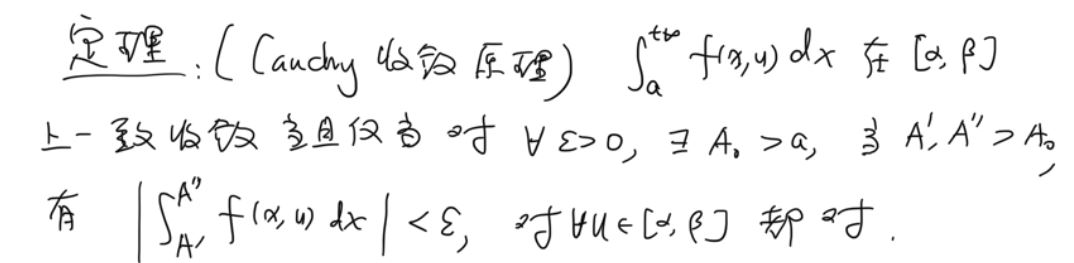 定理:(Cauchy 收敛原理) ∫_a^{+∞} f(x,u) dx 在 [α,β]
上一致收敛当且仅当 对 ∀ε>0, ∃ A₀ >a, 当 A', A'' > A₀,
有 |∫_{A'}^{A''} f(x,u) dx| < ε, 对∀u∈[α,β] 都对.